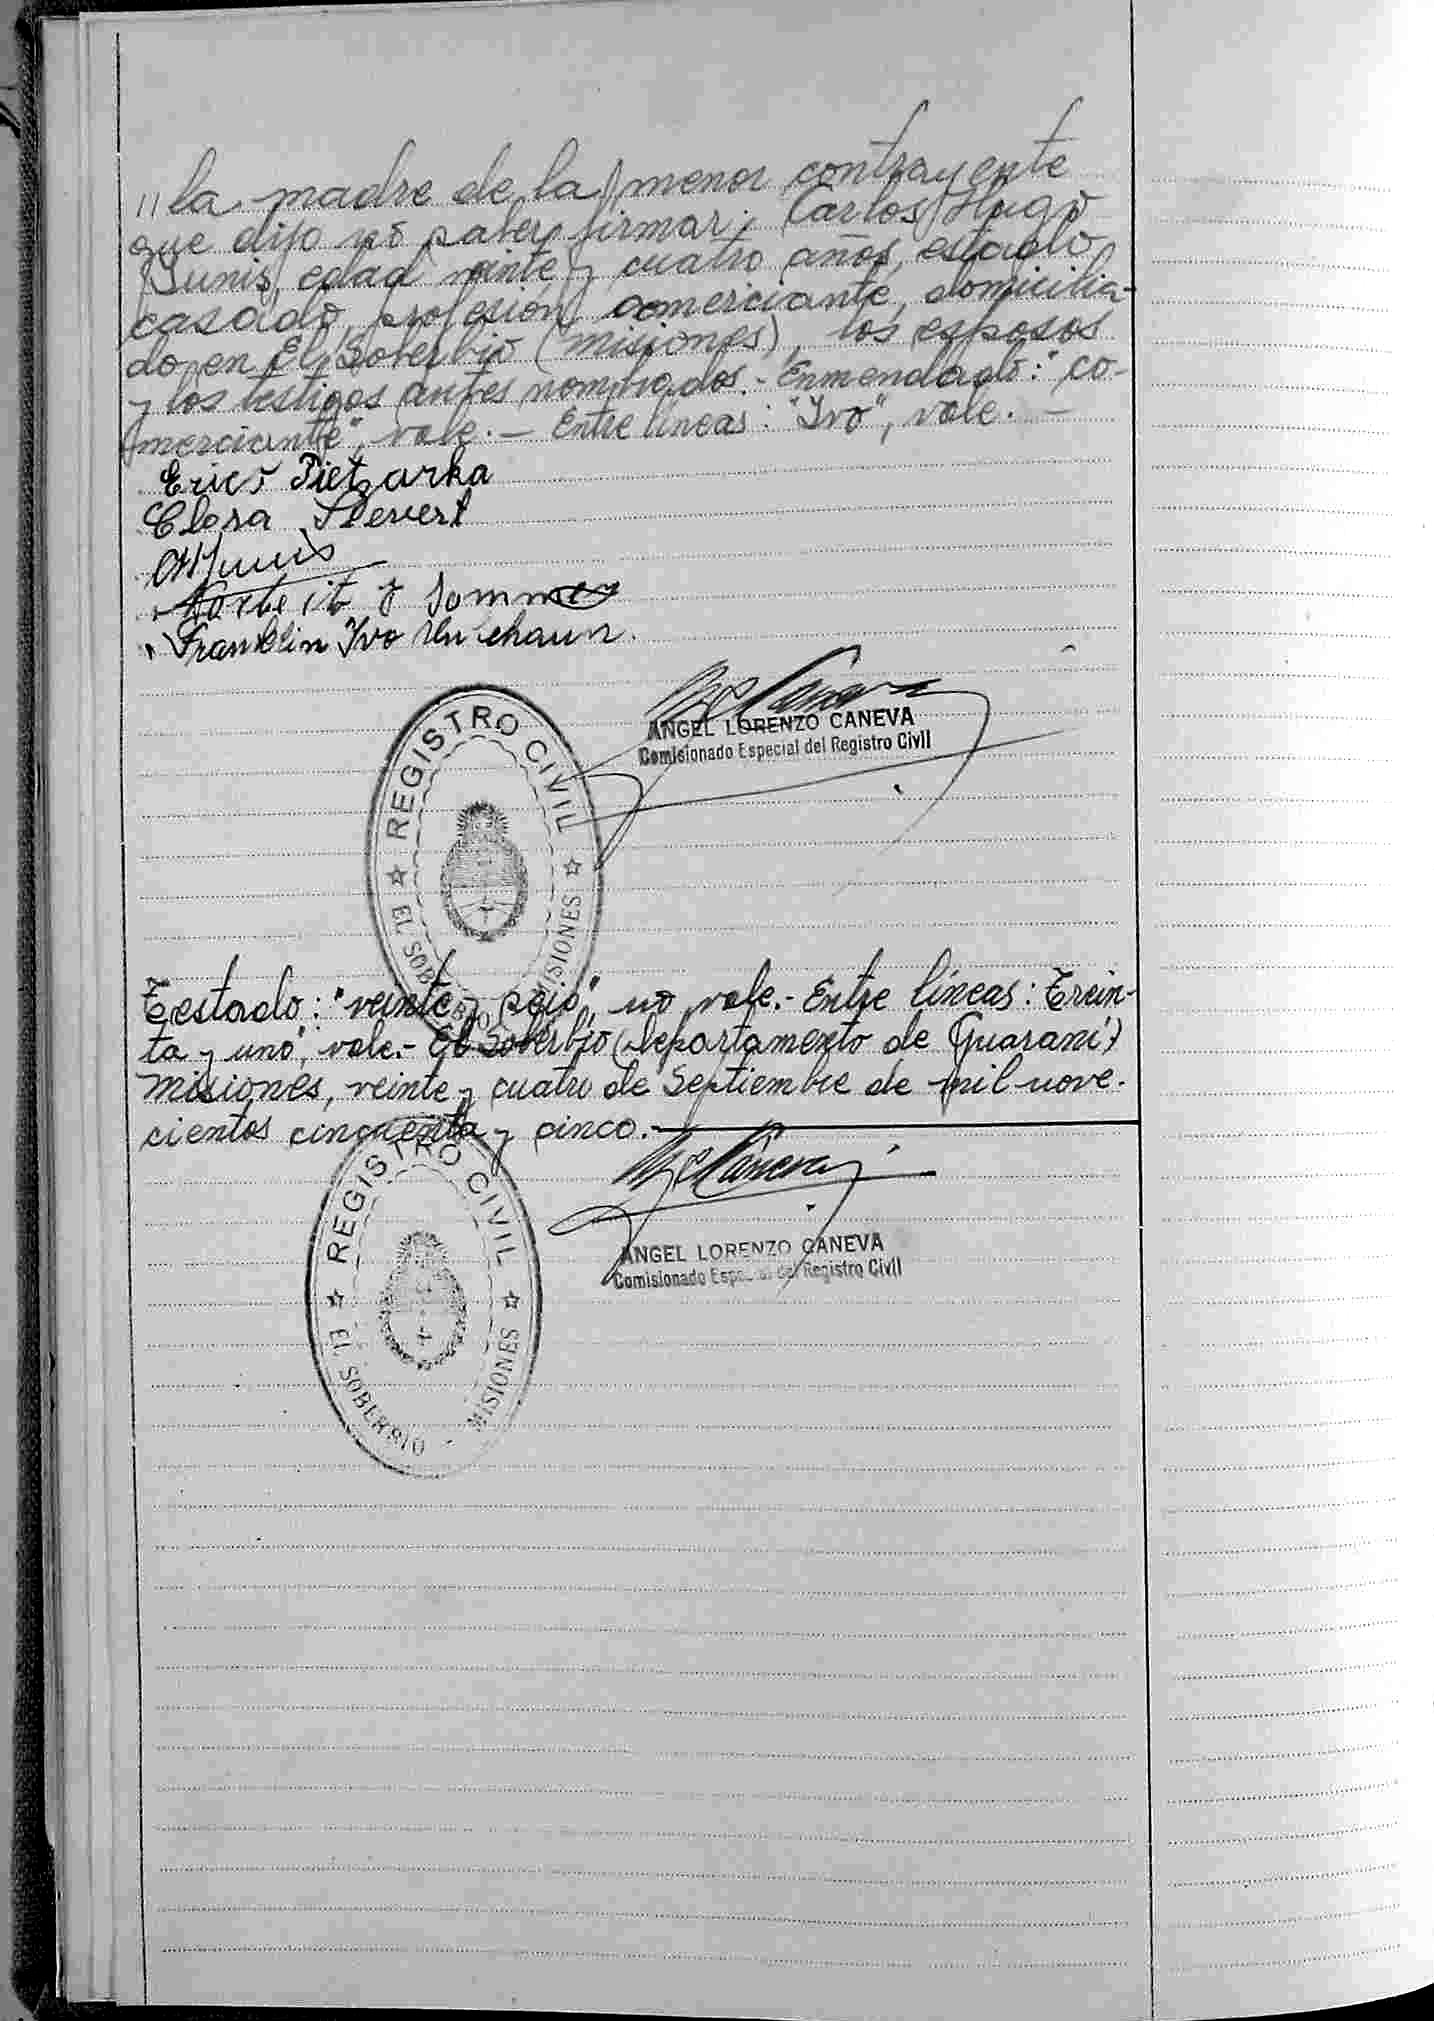 // la madre de la menor contrayente
que dijo nó saber firmar; Carlos Hugo
Yunis, edad veinte y cuatro años, estado
casado, profesión comerciante, domicilia-
do en El Soberbio (Misiones), los esposos
y los testigos antes nombrados.- Enmendado: "co-
merciante", vale.- Entre líneas: "Ivo", vale.-
Erico Pietzarka
Clora Sievert
y Sommer
Franklin Ivo
ANGEL LORENZO CANEVA
Comisionado Especial del Registro Civil
REGISTRO CIVIL
EL SOBERBIO MISIONES
Testado: "veinte y seis", nó vale.- Entre líneas: Trein-
ta y uno", vale.- El Soberbio (Departamento de Guaraní)
Misiones, veinte y cuatro de Septiembre de mil nove-
cientos cincuenta y cinco.-
REGISTRO CIVIL
EL SOBERBIO - MISIONES
ANGEL LORENZO CANEVA
Comisionado Especial del Registro Civil